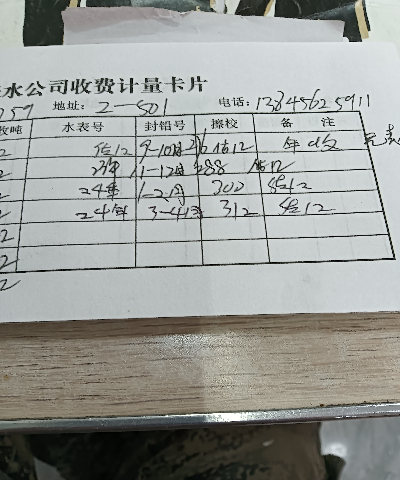 水公司收费计量卡片
759 地址: 2-501 电话: 13845625911
收吨 水表号 封铅号 擦校 备 注
2 估12 9-10月 估12
2 23年 11-12月 288 估12
2 24年 1-2月 300 估12
2 24年 3-4月 312 估12
2
2
2